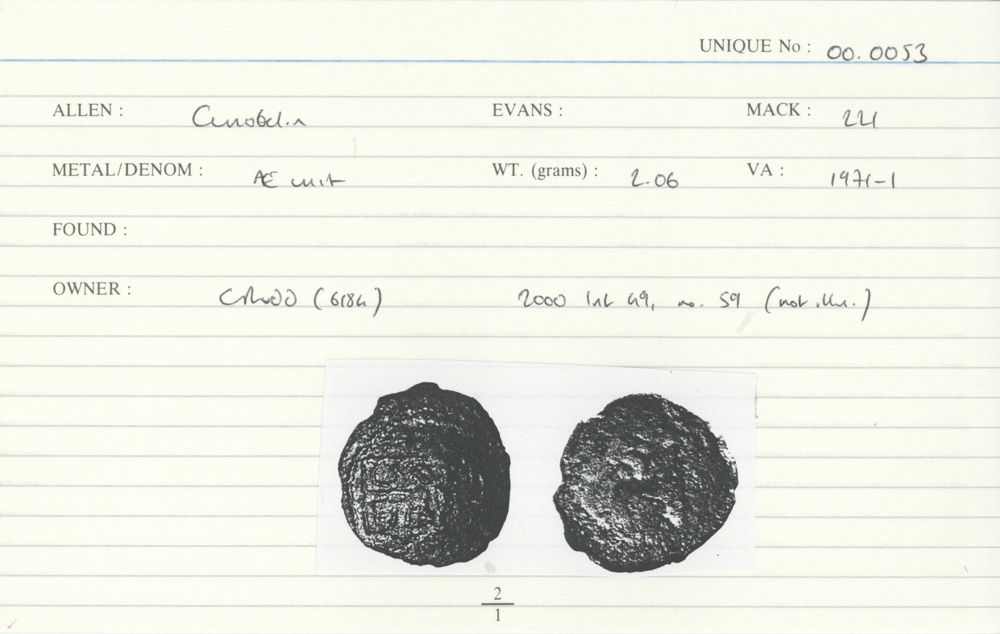 UNIQUE No : 00.0053
ALLEN : Cunobelin EVANS : MACK : 221
METAL/DENOM : Æ unit WT. (grams) : 2.06 VA : 1971-1
FOUND :
OWNER : CRudd (6184) 2000 list 49, no. 59 (not illus.)
2
1